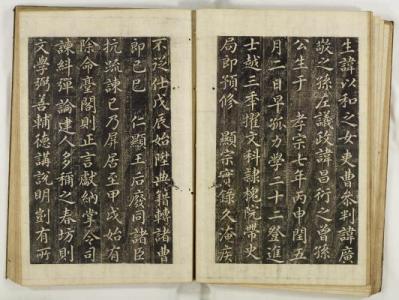 生諱以和之女吏曹參判諱廣
敬之孫左議政諱昌衍之曾孫
公生于 孝宗七年丙申閏五
月二日早孤力學二十二登進
士越三年擢文科隷槐院帶史
局郎預修 顯宗實錄久淹疾
不從仕戊辰始陞典籍轉諸曹
郎己巳 仁顯王后廢同諸臣
抗疏諫已乃屏居至甲戌始有
除命臺閣則正言獻納掌令司
諫糾彈論建人多稱之春坊則
文學弼善輔德講說明剴有所